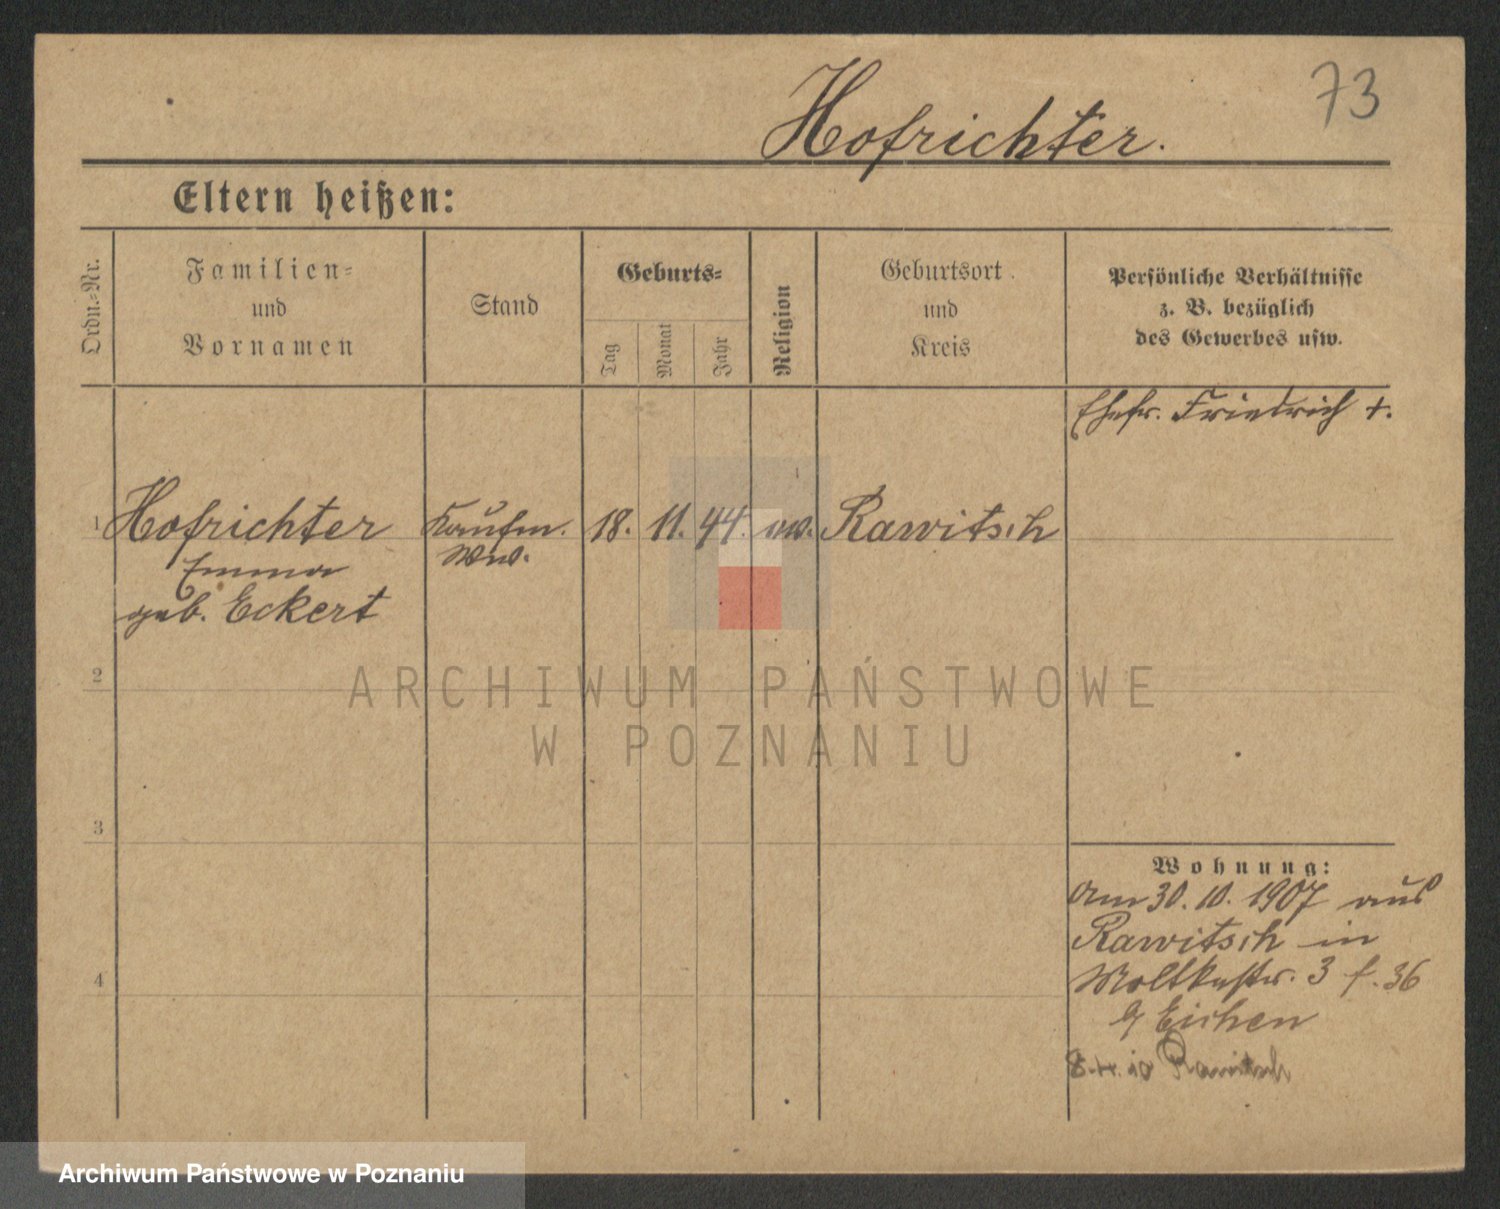 73
Hofrichter.
Eltern heißen:
Ordn.=Nr.
Familien=
und
Vornamen
Stand
Geburts=
Tag
Monat
Jahr
Religion
Geburtsort
und
Kreis
Persönliche Verhältnisse
z. B. bezüglich
des Gewerbes usw.
Ehefr. Friedrich †.
1 Hofrichter Kaufm. 18. 11. 44. ev. Rawitsch
Emma Ww.
geb. Eckert
2
3
4
Wohnung:
Am 30. 10. 1907 aus
Rawitsch in
Moltkestr. 3 f. 36
b/ Eichen
8.4.10 Rawitsch
ARCHIWUM PAŃSTWOWE
W POZNANIU
Archiwum Państwowe w Poznaniu